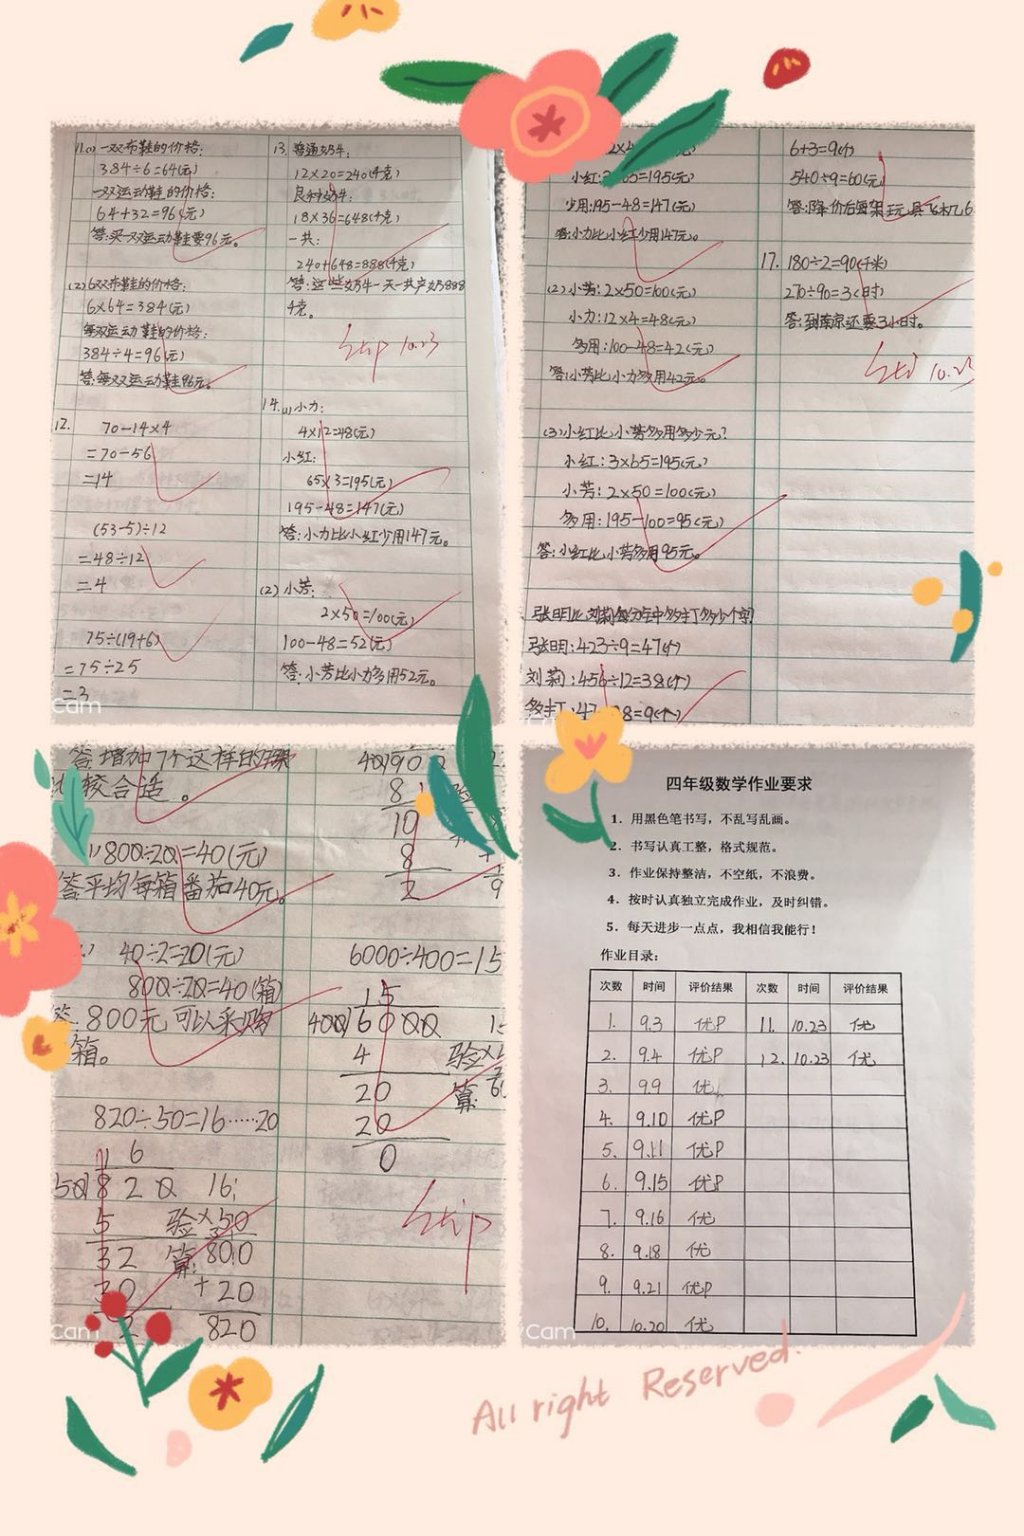 11.(1)一双布鞋的价格:
384÷6=64(元)
一双运动鞋的价格:
64+32=96(元)
答:买一双运动鞋要96元。
(2)6双布鞋的价格:
6×64=384(元)
每双运动鞋的价格:
384÷4=96(元)
答:每双运动鞋96元。
12. 70-14×4
=70-56
=14
(53-5)÷12
=48÷12
=4
75÷(19+6)
=75÷25
=3
Cam
13. 普通奶牛:
12×20=240(千克)
良种奶牛:
18×36=648(千克)
一共:
240+648=888(千克)
答:这些奶牛一天一共产奶888
千克。
10.23
14.(1)小力:
4×12=48(元)
小红:
65×3=195(元)
195-48=147(元)
答:小力比小红少用147元。
(2)小芳:
2×50=100(元)
100-48=52(元)
答:小芳比小力多用52元。
小红:3×65=195(元)
少用:195-48=147(元)
答:小力比小红少用147元。
(2)小芳:2×50=100(元)
小力:12×4=48(元)
多用:100-48=42(元)
答:小芳比小力多用42元。
(3)小红比小芳多用多少元?
小红:3×65=195(元)
小芳:2×50=100(元)
多用:195-100=95(元)
答:小红比小芳多用95元。
张明比刘莉每分钟多打多少个字?
张明:423÷9=47(个)
刘莉:456÷12=38(个)
多打:47 8=9(个)
6+3=9(个)
540÷9=60(元)
答:降价后每架玩具飞机6
17. 180÷2=90(千米)
270÷90=3(时)
答:到南京还要3小时。
10.23
答:增加7个这样的
比较合适。
800÷20=40(元)
答:平均每箱番茄40元。
40÷2=20(元)
800÷20=40(箱)
答:800元可以采购
箱。
820÷50=16……20
1 6
50)8 2 0 16
5 验 ×50
32 算: 800
30 +20
2 820
40)90
8
10
8
2 9
6000÷400=15
15
400)6000
4 验
20 算:
20
0
四年级数学作业要求
1. 用黑色笔书写,不乱写乱画。
2. 书写认真工整,格式规范。
3. 作业保持整洁,不空纸,不浪费。
4. 按时认真独立完成作业,及时纠错。
5. 每天进步一点点,我相信我能行!
作业目录:
次数 时间 评价结果 次数 时间 评价结果
1. 9.3 优P 11. 10.23 优
2. 9.4 优P 12. 10.23 优
3. 9.9 优
4. 9.10 优P
5. 9.11 优P
6. 9.15 优P
7. 9.16 优
8. 9.18 优
9. 9.21 优P
10. 10.20 优
Cam
Cam
All right Reserved.